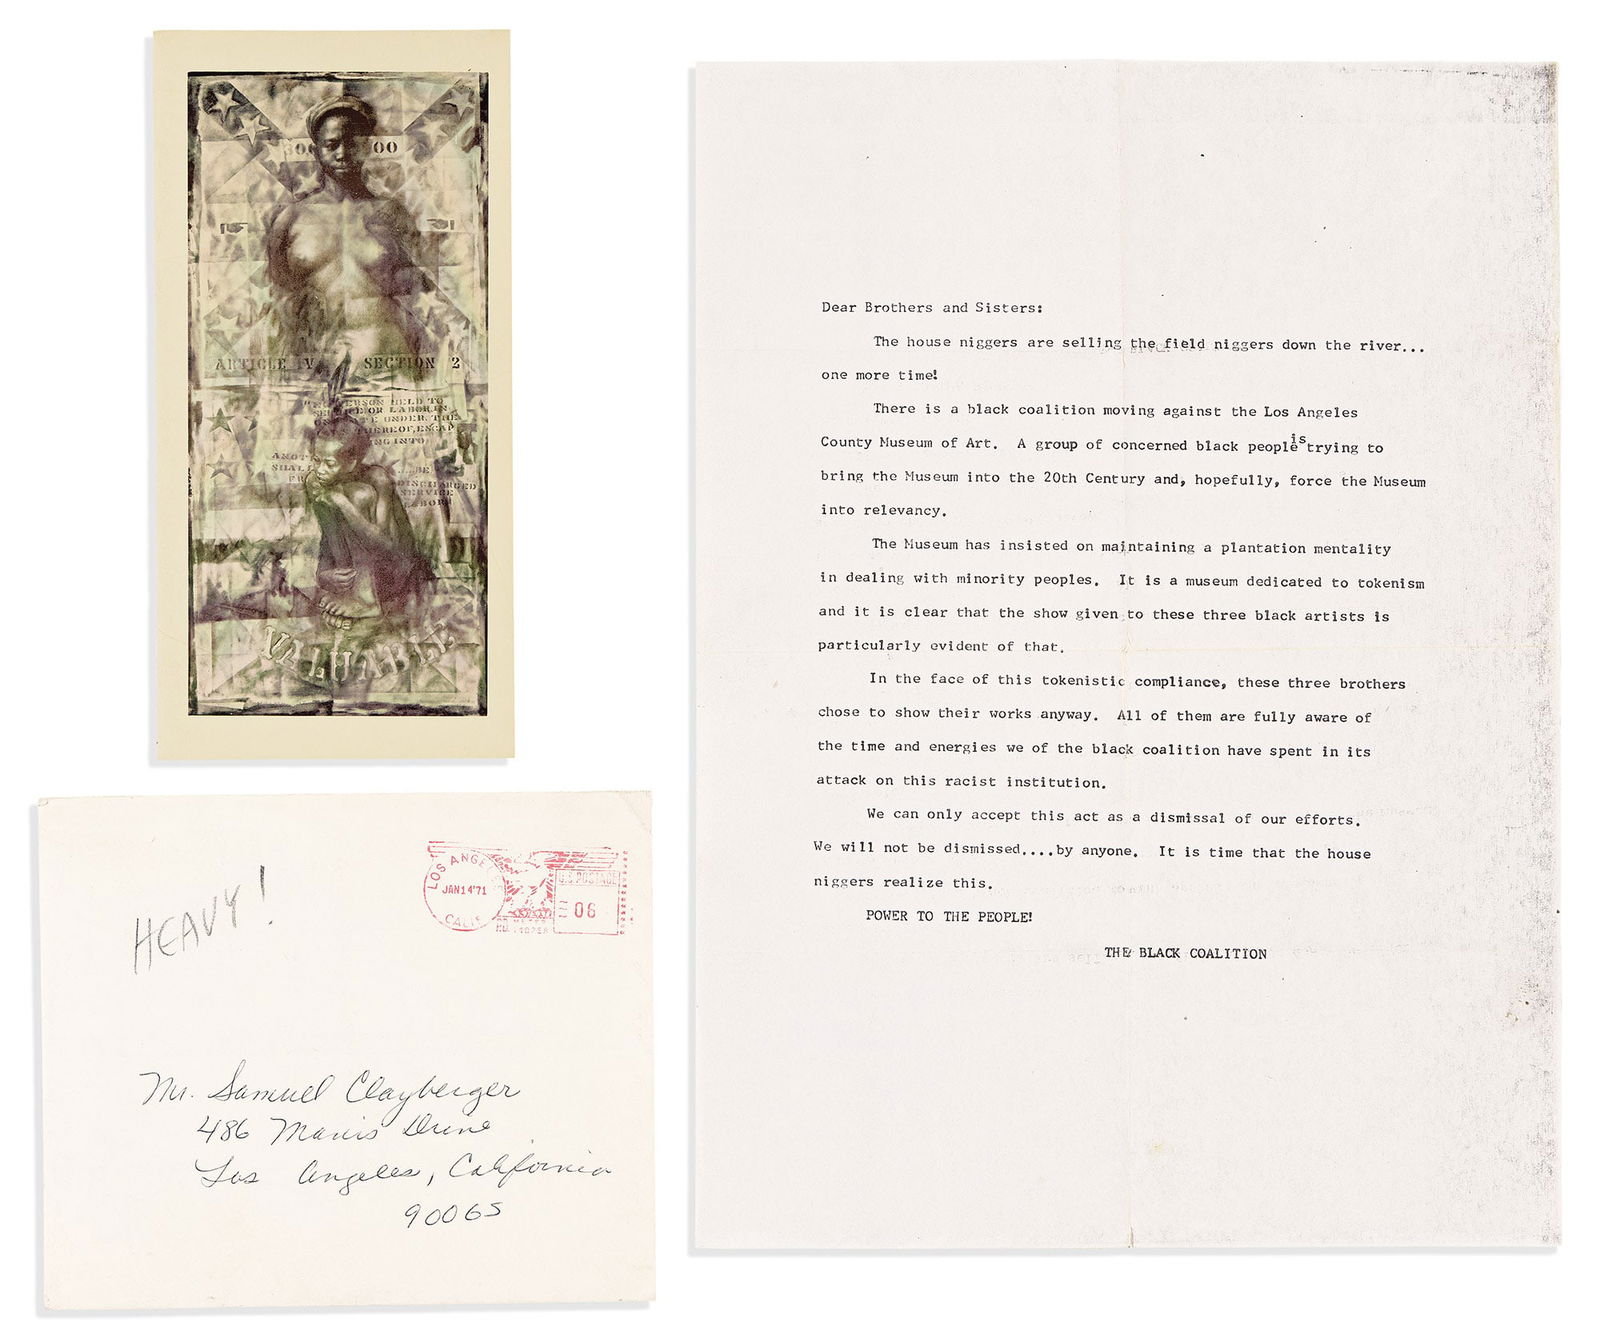 00
ARTICLE V SECTION 2
PERSON HELD TO
SERVICE OR LABOR IN
ONE STATE UNDER THE
LAWS THEREOF, ESCAP
ING INTO
ANOT
SHALL
FR
....BE
DISCHARGED
SERVICE
LABOR
VALUABLE
HEAVY!
LOS ANGELES
CALIF
JAN14'71
U.S. POSTAGE
06
Mr. Samuel Clayberger
486 Mavis Drive
Los Angeles, California
90065
Dear Brothers and Sisters:
The house niggers are selling the field niggers down the river...
one more time!
There is a black coalition moving against the Los Angeles
County Museum of Art. A group of concerned black people is trying to
bring the Museum into the 20th Century and, hopefully, force the Museum
into relevancy.
The Museum has insisted on maintaining a plantation mentality
in dealing with minority peoples. It is a museum dedicated to tokenism
and it is clear that the show given to these three black artists is
particularly evident of that.
In the face of this tokenistic compliance, these three brothers
chose to show their works anyway. All of them are fully aware of
the time and energies we of the black coalition have spent in its
attack on this racist institution.
We can only accept this act as a dismissal of our efforts.
We will not be dismissed....by anyone. It is time that the house
niggers realize this.
POWER TO THE PEOPLE!
THE BLACK COALITION